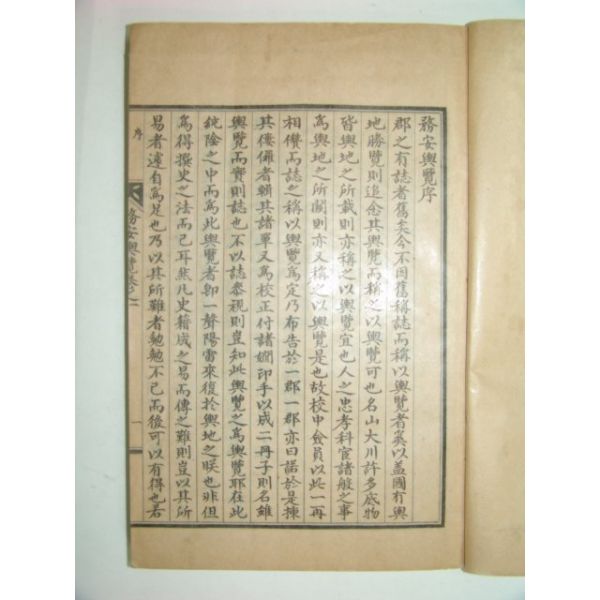 務安輿覽序
郡之有誌者舊矣今不因舊稱誌而稱以輿覽者奚以盖國有輿
地勝覽則追念其輿覽而稱之以輿覽可也名山大川許多底物
皆輿地之所載則亦稱之以輿覽宜也人之忠孝科宦諸般之事
爲輿地之所關則亦又稱之以輿覽是也故校中僉員以此一再
相儹而誌之稱以輿覽爲定乃布告於一郡一郡亦曰諾於是揀
其僂儸者輯其諸單又爲校正付諸嫺印手以成二冊子則名雖
輿覽而實則誌也不以誌泰視則豈知此輿覽之爲輿覽耶在此
純陰之中而爲此輿覽者卽一聲陽雷來復於輿地之朕也非但
爲得撰史之法而已耳然凡史籍成之易而傳之難則豈以其所
易者遽自爲足也乃以其所難者勉勉不已而後可以有得也若
序
務安輿覽卷之一
一